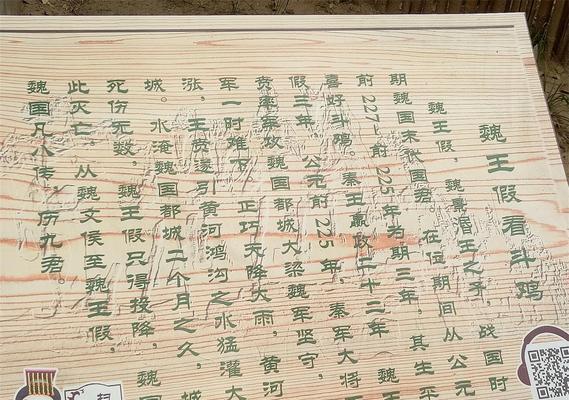 魏王假看斗鸡
魏王假，魏景湣王之子，战国时
期魏国末代国君。在位期间从公元
前227-前225年为期三年，其生平
喜好斗鸡。秦王嬴政二十二年
假三年，公元前225年，秦军大将王
贲率军攻魏国都城大梁魏军坚守，
军一时难下。正巧天降大雨，黄河
涨，王贲遂引黄河鸿沟之水猛灌大
城。水淹魏国都城二个月之久，城
死伤无数，魏王假只得投降，魏国
此灭亡，从魏文侯至魏王假，
魏国凡八传，历九君。